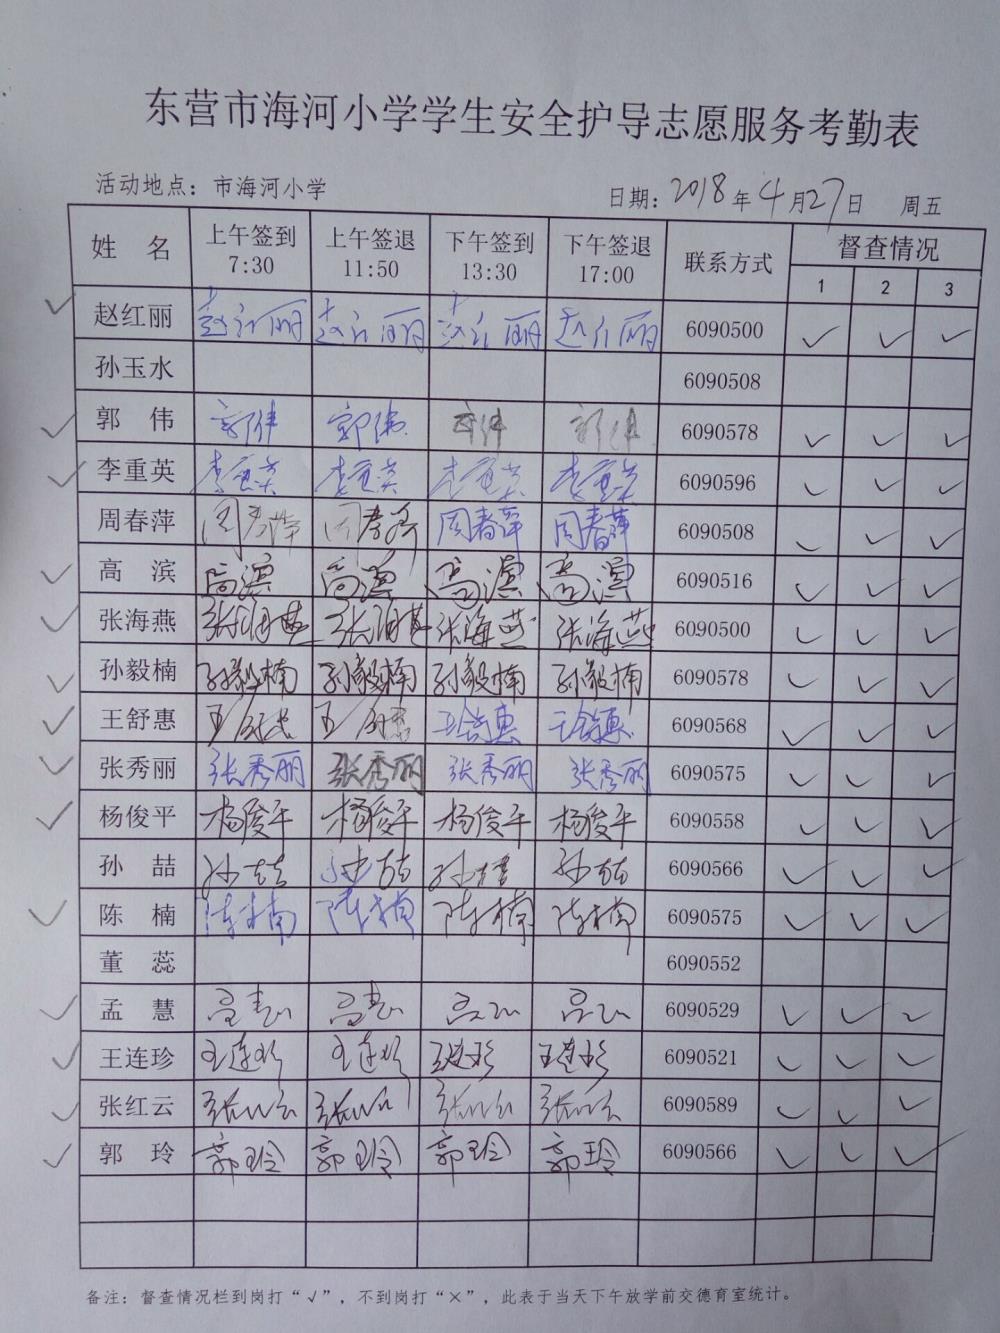 东营市海河小学学生安全护导志愿服务考勤表
活动地点：市海河小学 日期：2018年4月27日 周五
姓 名 上午签到 7:30 上午签退 11:50 下午签到 13:30 下午签退 17:00 联系方式 督查情况
1 2 3
✓ 赵红丽 赵红丽 赵红丽 赵红丽 赵红丽 6090500 ✓ ✓ ✓
孙玉水 6090508
✓ 郭 伟 郭伟 郭伟 郭伟 郭伟 6090578 ✓ ✓ ✓
✓ 李重英 李重英 李重英 李重英 李重英 6090596 ✓ ✓ ✓
周春萍 周春萍 周春萍 周春萍 周春萍 6090508 ✓ ✓ ✓
✓ 高 滨 高滨 高滨 高滨 高滨 6090516 ✓ ✓ ✓
✓ 张海燕 张海燕 张海燕 张海燕 张海燕 6090500 ✓ ✓ ✓
✓ 孙毅楠 孙毅楠 孙毅楠 孙毅楠 孙毅楠 6090578 ✓ ✓ ✓
✓ 王舒惠 王舒惠 王舒惠 王舒惠 王舒惠 6090568 ✓ ✓ ✓
✓ 张秀丽 张秀丽 张秀丽 张秀丽 张秀丽 6090575 ✓ ✓ ✓
✓ 杨俊平 杨俊平 杨俊平 杨俊平 杨俊平 6090558 ✓ ✓ ✓
孙 喆 孙喆 孙喆 孙喆 孙喆 6090566 ✓ ✓ ✓
✓ 陈 楠 陈楠 陈楠 陈楠 陈楠 6090575 ✓ ✓ ✓
董 蕊 6090552
✓ 孟 慧 孟慧 孟慧 孟慧 孟慧 6090529 ✓ ✓ ✓
✓ 王连珍 王连珍 王连珍 王连珍 王连珍 6090521 ✓ ✓ ✓
✓ 张红云 张红云 张红云 张红云 张红云 6090589 ✓ ✓ ✓
✓ 郭 玲 郭玲 郭玲 郭玲 郭玲 6090566 ✓ ✓ ✓
备注：督查情况栏到岗打“√”，不到岗打“×”，此表于当天下午放学前交德育室统计。